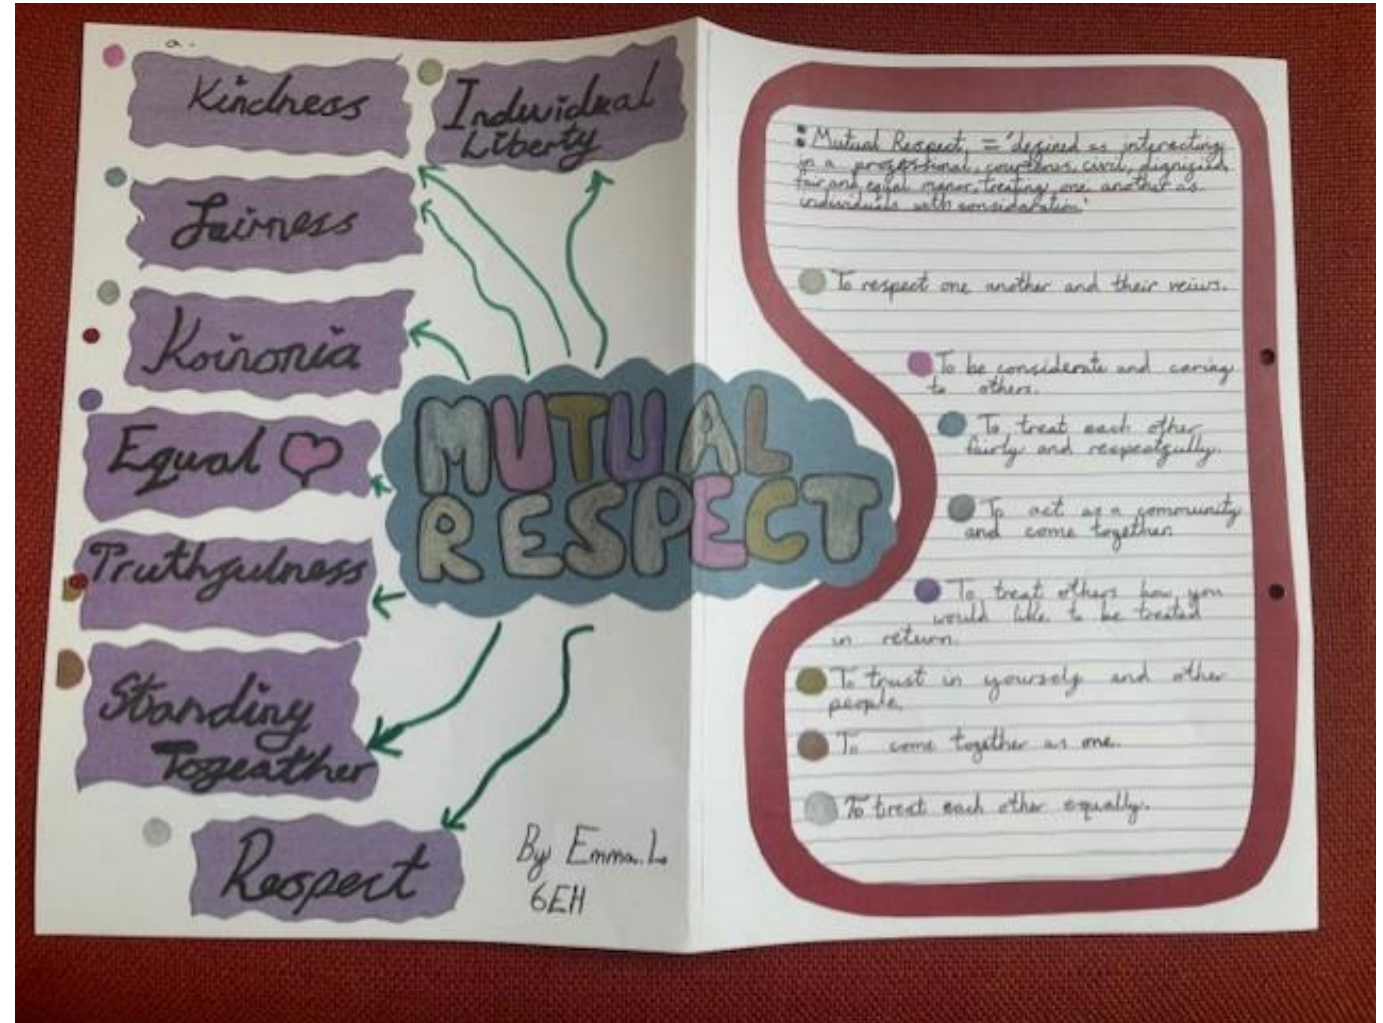 Kindness
Individual
Liberty
Fairness
Koinonia
Equal
Truthfulness
Standing
Togeather
Respect
MUTUAL
RESPECT
By Emma.L
6EH
: Mutual Respect, = 'defined as interacting
in a professional, courteous, civil, dignified,
fair and equal manor, treating one another as
individuals with consideration'
To respect one another and their veiws.
To be considerate and caring
to others.
To treat each other
fairly and respectfully.
To act as a community
and come together.
To treat others how you
would like to be treated
in return.
To trust in yourself and other
people.
To come together as one.
To treat each other equally.